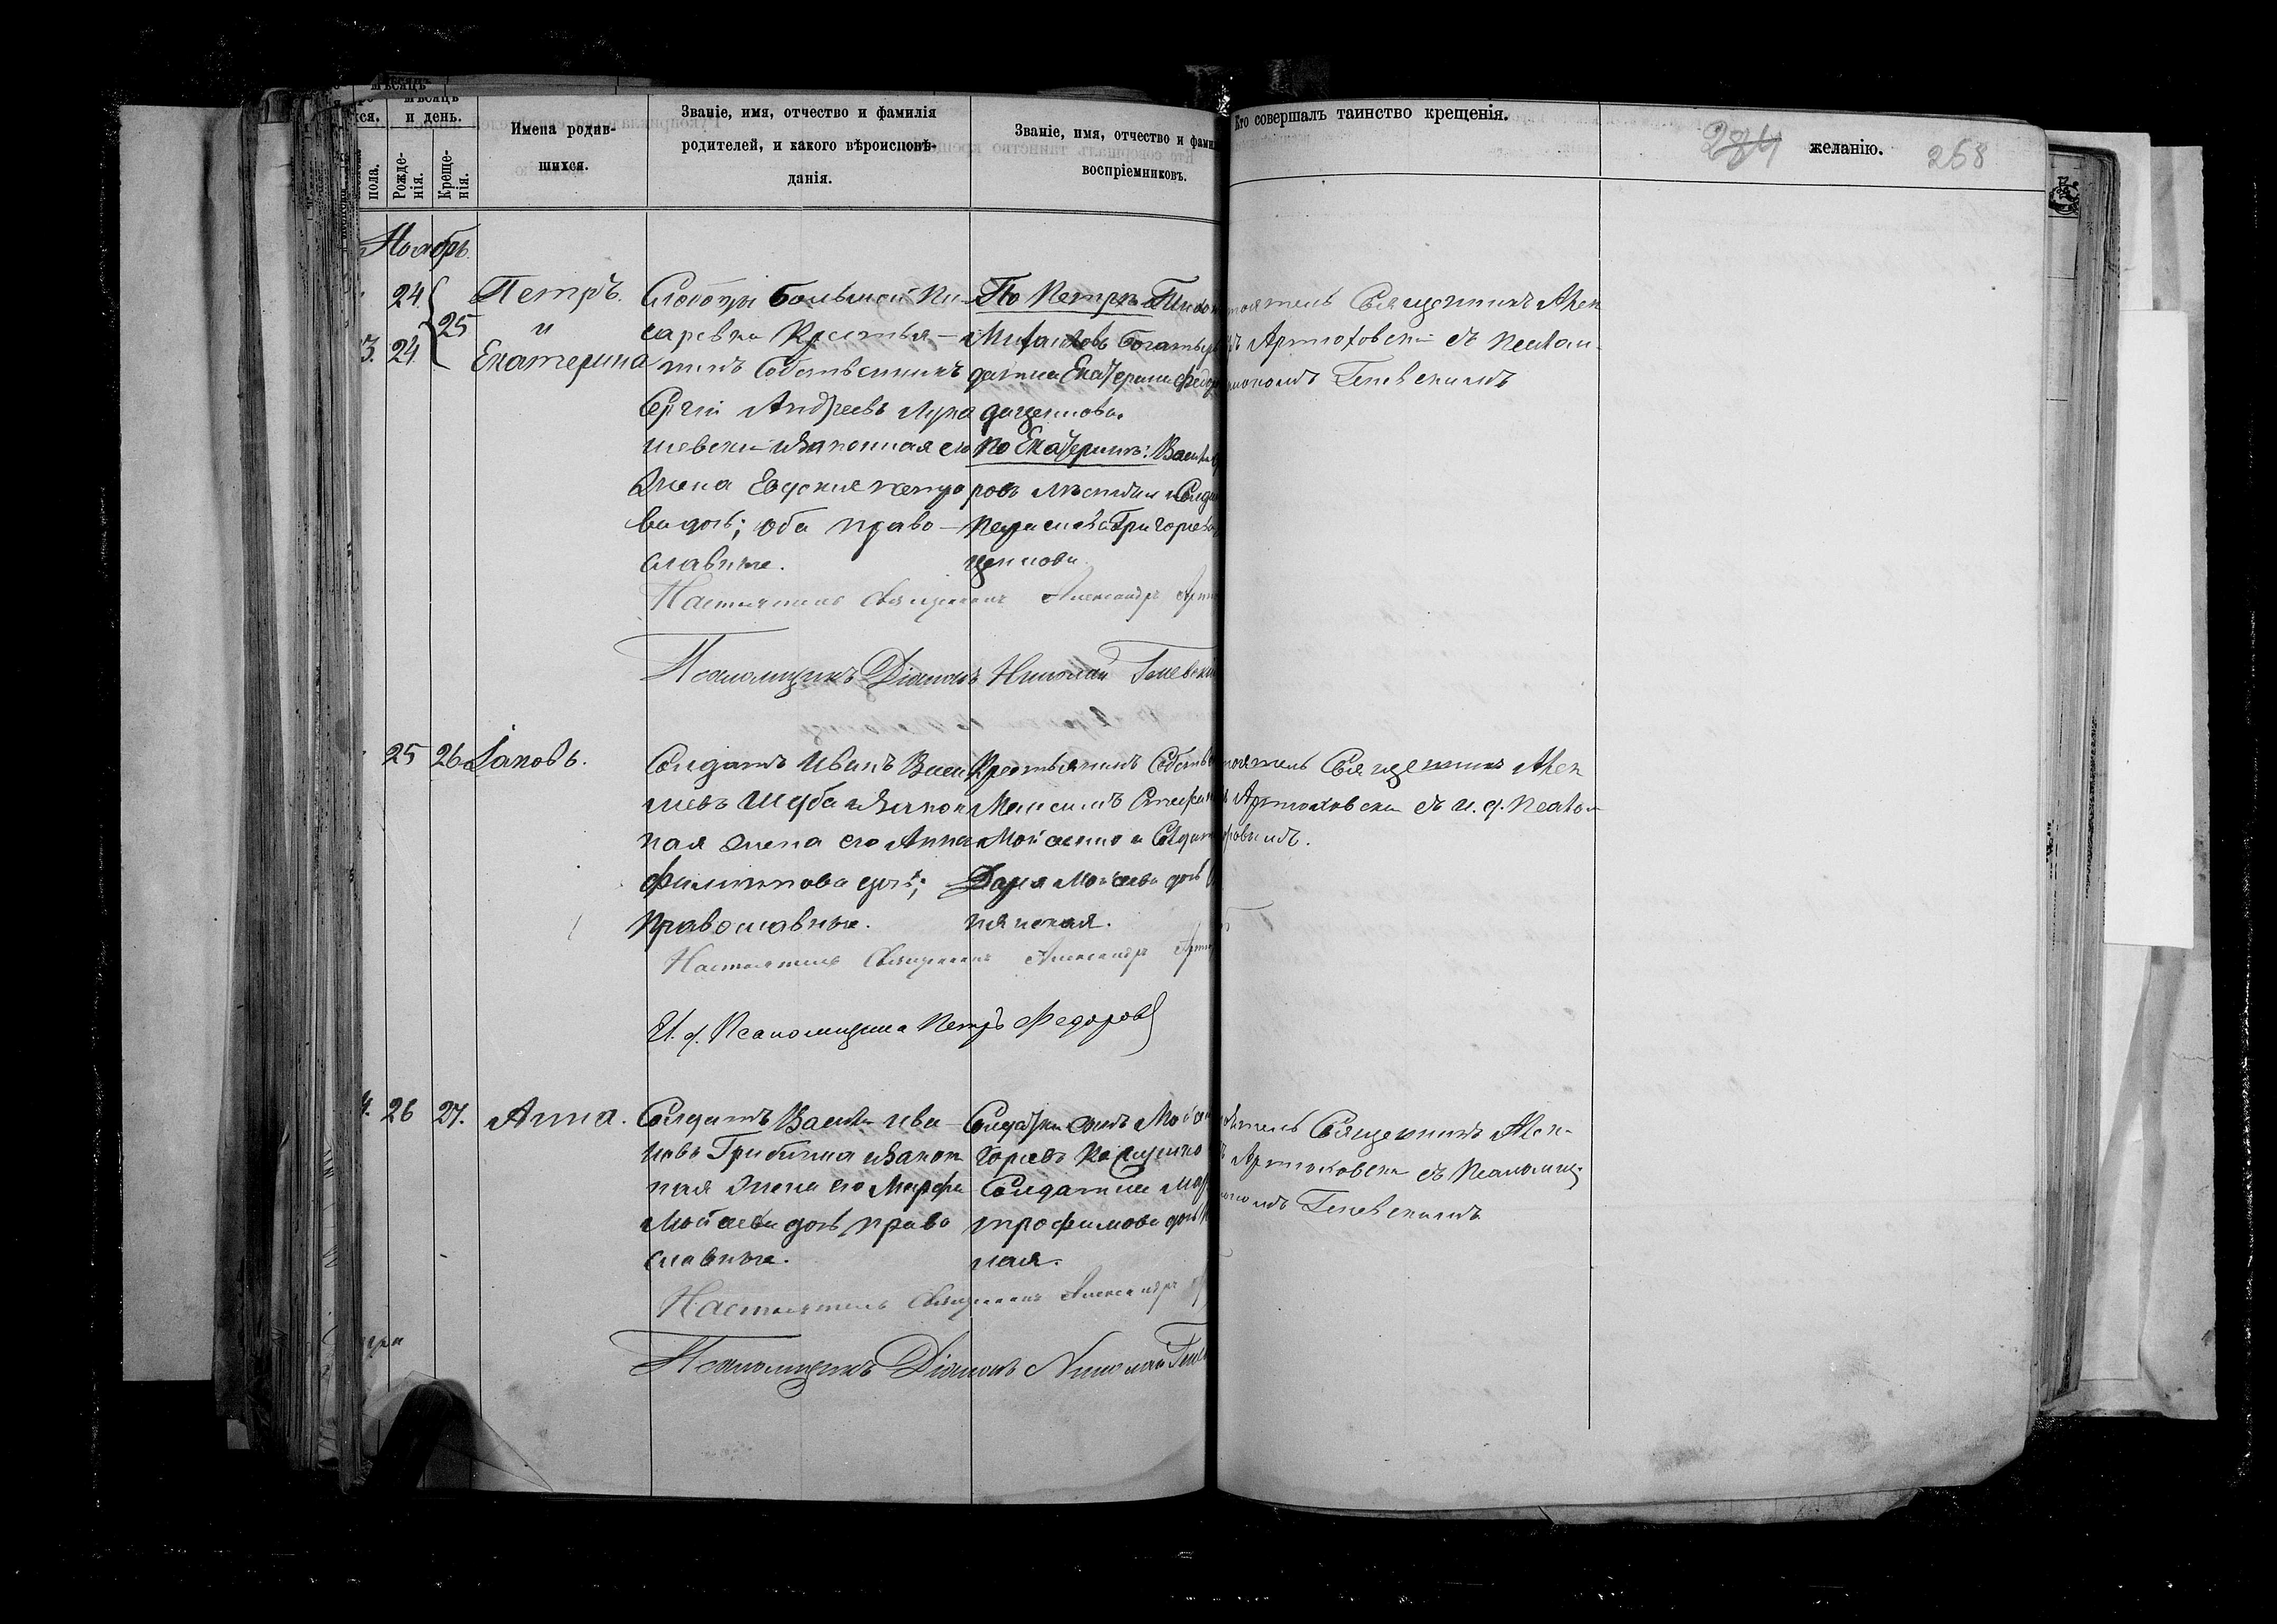 мѣсяцъ
мѣсяцъ
и день.
пола.
Рожде-
нія.
Креще-
нія.
Имена родив-
шихся.
Званіе, имя, отчество и фамилія
родителей, и какого вѣроисповѣ-
данія.
Званіе, имя, отчество и фами
воспріемниковъ.
Кто совершалъ таинство крещенія.
284
желанію.
268
Ноябрь.
24
25
3. 24
Петръ.
и
Екатерина
Слободы Большой Пи-
саревки Крестья-
нинъ Собственникъ
Сергій Андреевъ Лука
шевскій и законная его
жена Евдокия Петро
ва дочь; оба право-
славные.
По Петрѣ Тихон
Михайловъ Богатыр
датка Екатерина Федор
даценкова.
По Екатеринѣ: Васил
ровъ и Солда
Параскева Григорьева
ценкова
тоятель Священникъ Алек
Артюховскій съ Псалом-
Діакономъ Гневскимъ
Настоятель Священникъ Александръ Артю
Псаломщикъ Діаконъ Николай Гневскій
25 26
Іаковъ.
Солдатъ Иванъ Васи
льевъ Шуба и закон
ная жена его Анна
Филиппова дочь;
Православные.
Крестьянинъ Собстве
Максимъ Стефан
Мойсенко и Солдат
Дарья Моисеева дочь
тоятель Священникъ Алек
Артюховскій съ И. д. Псалом
Федоровымъ.
Настоятель Священникъ Александръ Артю
И. д. Псаломщика Петръ Федоровъ
4. 26 27.
Анна.
Солдатъ Василій Ива-
новъ Грибинка и закон
ная жена его Марфа
Мойсеева дочь, право
славные.
Солдатскій сынъ Мойсе
Солдатка Мар
трофимова дочь
ная.
тоятель Священникъ Алек-
Артюховскій съ Псаломщ
Діакономъ Гневскимъ
Настоятель Священникъ Александръ
Псаломщикъ Діаконъ Николай Гнев